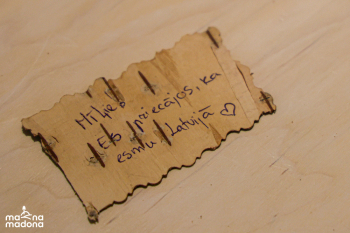 Mīļie!
Es priecājos, ka
esmu Latvijā ♡
ma na
madona